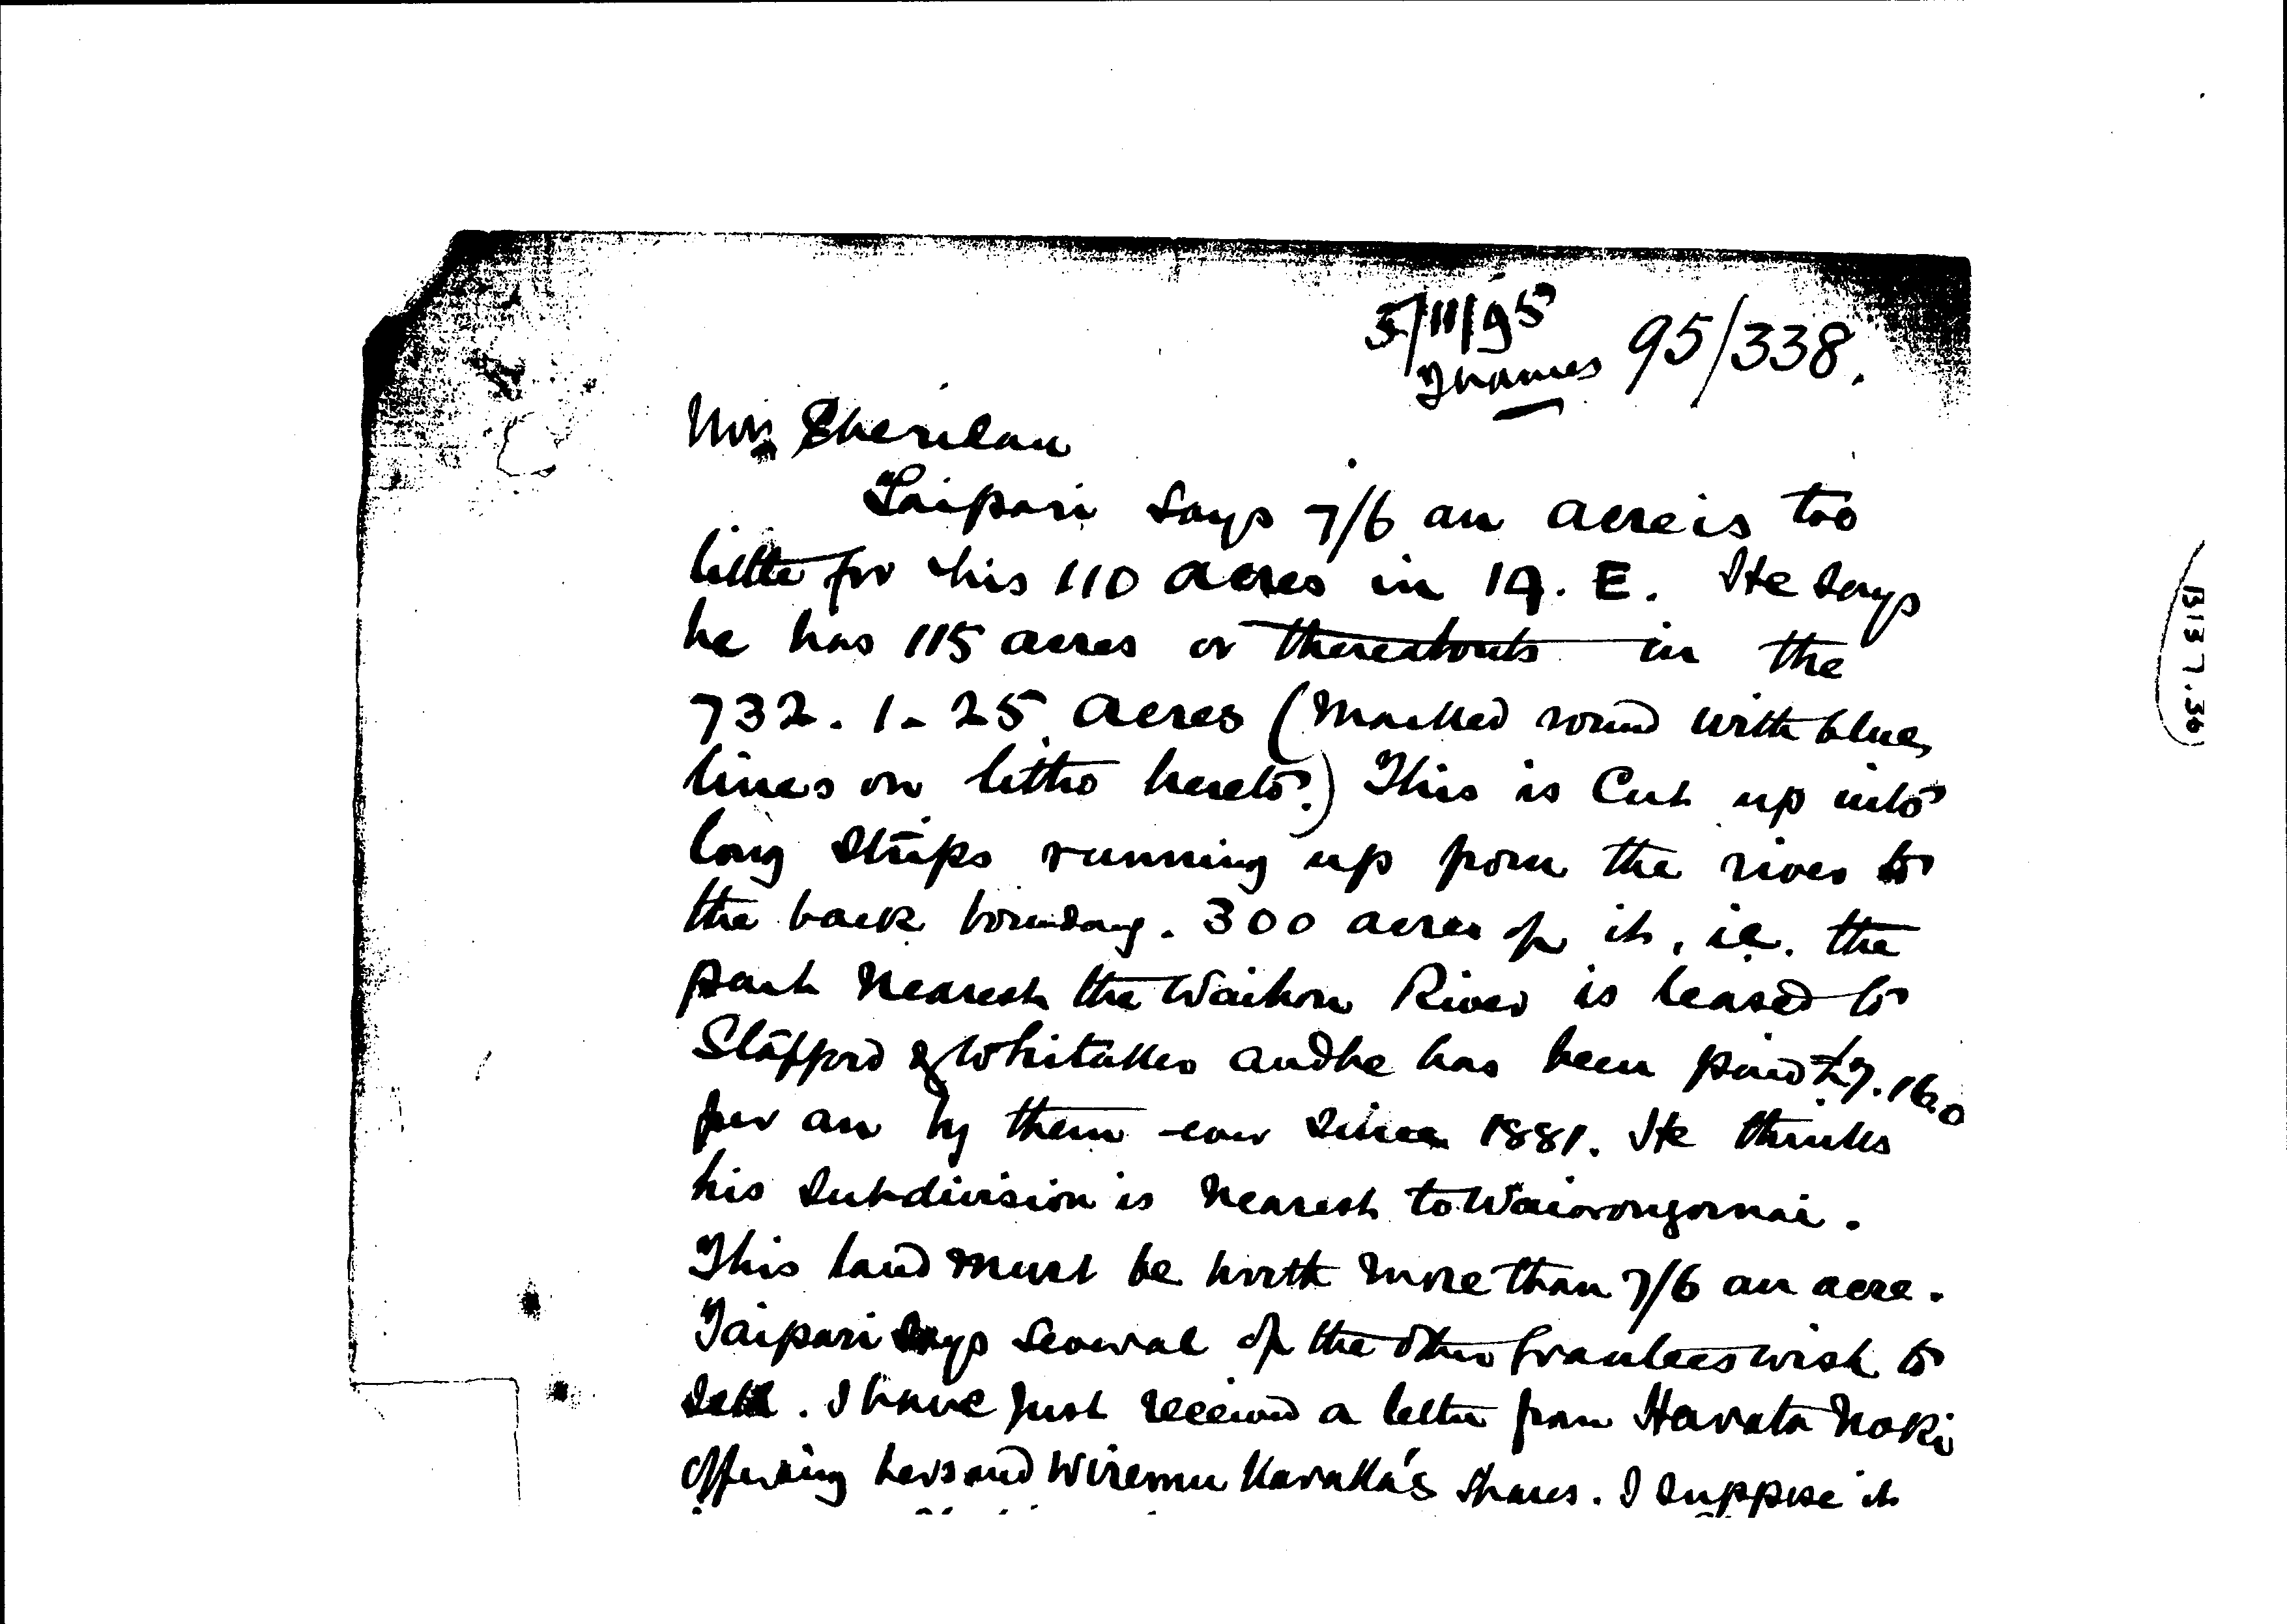 5/11/95
Thames 95/338.
Mr Sheridan
Taipari says 7/6 an acre is too
little for his 110 acres in 19. E. He says
he has 115 acres or thereabouts in the
732. 1 - 25 acres (marked round with blue
lines on litho hereto.) This is cut up into
long strips running up from the river to
the back boundary. 300 acres of it, i.e. the
part nearest the Waihou River is leased to
Stafford & Whitaker and he has been paid £7.16.0
per an by them ever since 1881. He thinks
his subdivision is nearest to Waiorongomai.
This land must be worth more than 7/6 an acre.
Taipari says several of the other Grantees wish to
sell. I have just received a letter from Harata Noki
offering hers and Wiremu Karaka's shares. I suppose it
B1337.36